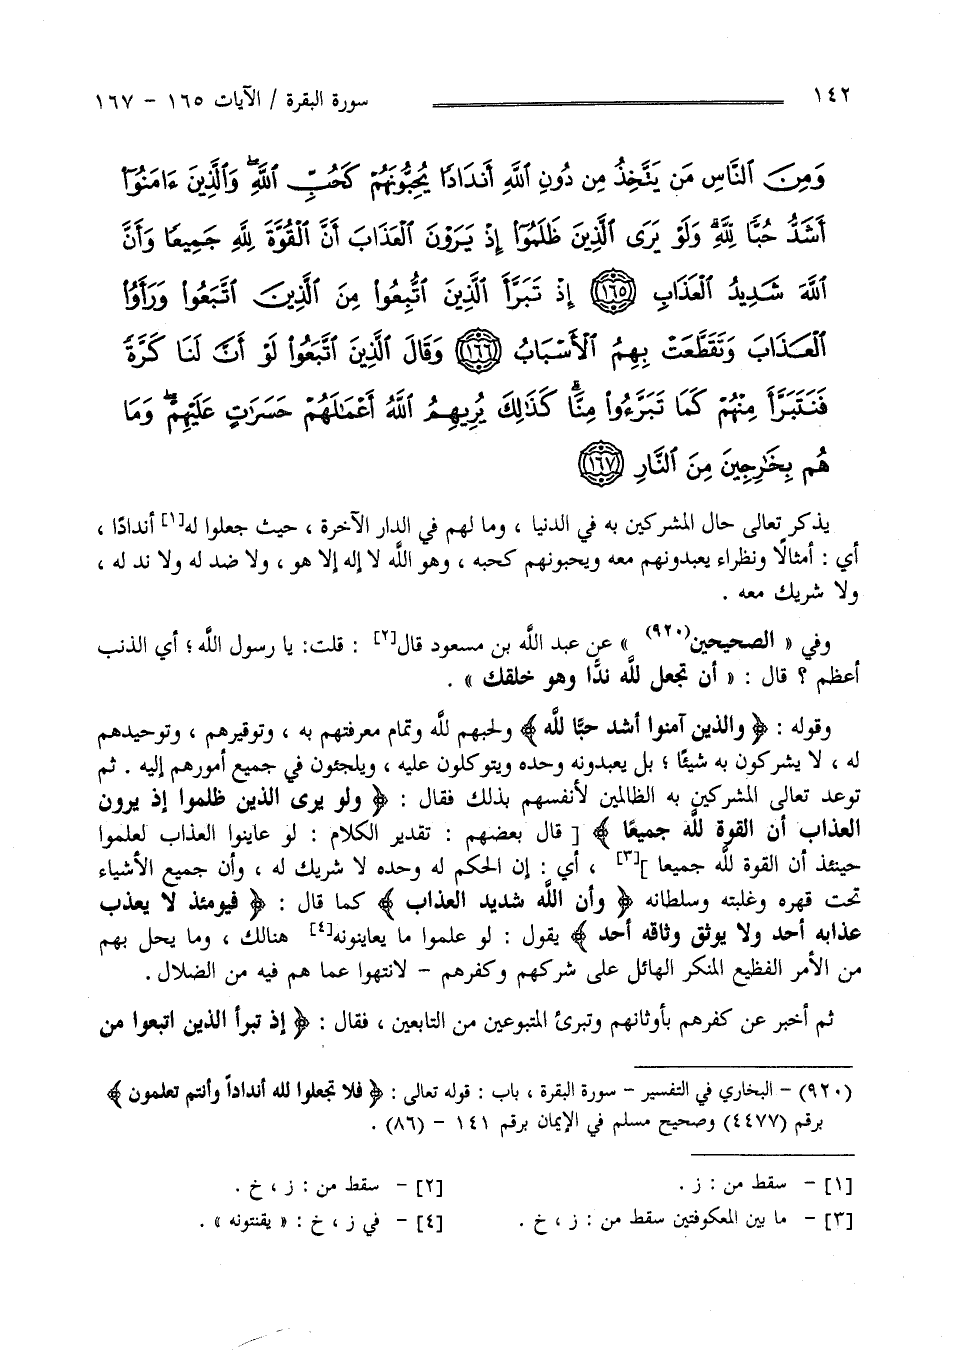 ١٤٢ سورة البقرة / الآيات ١٦٥ - ١٦٧
وَمِنَ ٱلنَّاسِ مَن يَتَّخِذُ مِن دُونِ ٱللَّهِ أَندَادًا يُحِبُّونَهُمْ كَحُبِّ ٱللَّهِ ۖ وَٱلَّذِينَ ءَامَنُوٓا۟
أَشَدُّ حُبًّا لِّلَّهِ ۗ وَلَوْ يَرَى ٱلَّذِينَ ظَلَمُوٓا۟ إِذْ يَرَوْنَ ٱلْعَذَابَ أَنَّ ٱلْقُوَّةَ لِلَّهِ جَمِيعًا وَأَنَّ
ٱللَّهَ شَدِيدُ ٱلْعَذَابِ ١٦٥ إِذْ تَبَرَّأَ ٱلَّذِينَ ٱتُّبِعُوا۟ مِنَ ٱلَّذِينَ ٱتَّبَعُوا۟ وَرَأَوُا۟
ٱلْعَذَابَ وَتَقَطَّعَتْ بِهِمُ ٱلْأَسْبَابُ ١٦٦ وَقَالَ ٱلَّذِينَ ٱتَّبَعُوا۟ لَوْ أَنَّ لَنَا كَرَّةً
فَنَتَبَرَّأَ مِنْهُمْ كَمَا تَبَرَّءُوا۟ مِنَّا ۗ كَذَٰلِكَ يُرِيهِمُ ٱللَّهُ أَعْمَٰلَهُمْ حَسَرَٰتٍ عَلَيْهِمْ ۖ وَمَا
هُم بِخَٰرِجِينَ مِنَ ٱلنَّارِ ١٦٧
يذكر تعالى حال المشركين به في الدنيا ، وما لهم في الدار الآخرة ، حيث جعلوا له[١] أندادًا ،
أي : أمثالًا ونظراء يعبدونهم معه ويحبونهم كحبه ، وهو اللَّه لا إله إلا هو ، ولا ضد له ولا ند له ،
ولا شريك معه .
وفي « الصحيحين(٩٢٠) » عن عبد اللَّه بن مسعود قال[٢] : قلت: يا رسول اللَّه ؛ أي الذنب
أعظم ؟ قال : « أن تجعل للَّه ندًّا وهو خلقك » .
وقوله : ﴿ والذين آمنوا أشد حبًّا للَّه ﴾ ولحبهم للَّه وتمام معرفتهم به ، وتوقيرهم ، وتوحيدهم
له ، لا يشركون به شيئًا ؛ بل يعبدونه وحده ويتوكلون عليه ، ويلجئون في جميع أمورهم إليه . ثم
توعد تعالى المشركين به الظالمين لأنفسهم بذلك فقال : ﴿ ولو يرى الذين ظلموا إذ يرون
العذاب أن القوة للَّه جميعًا ﴾ [ قال بعضهم : تقدير الكلام : لو عاينوا العذاب لعلموا
حينئذ أن القوة للَّه جميعا ][٣] ، أي : إن الحكم له وحده لا شريك له ، وأن جميع الأشياء
تحت قهره وغلبته وسلطانه ﴿ وأن اللَّه شديد العذاب ﴾ كما قال : ﴿ فيومئذ لا يعذب
عذابه أحد ولا يوثق وثاقه أحد ﴾ يقول : لو علموا ما يعاينونه[٤] هنالك ، وما يحل بهم
من الأمر الفظيع المنكر الهائل على شركهم وكفرهم - لانتهوا عما هم فيه من الضلال .
ثم أخبر عن كفرهم بأوثانهم وتبرئ المتبوعين من التابعين ، فقال : ﴿ إذ تبرأ الذين اتبعوا من
(٩٢٠) - البخاري في التفسير - سورة البقرة ، باب : قوله تعالى : ﴿ فلا تجعلوا لله أنداداً وأنتم تعلمون ﴾
برقم (٤٤٧٧) وصحيح مسلم في الإيمان برقم ١٤١ - (٨٦) .
[١] - سقط من : ز . [٢] - سقط من : ز ، خ .
[٣] - ما بين المعكوفتين سقط من : ز ، خ . [٤] - في ز ، خ : « يقنتونه » .